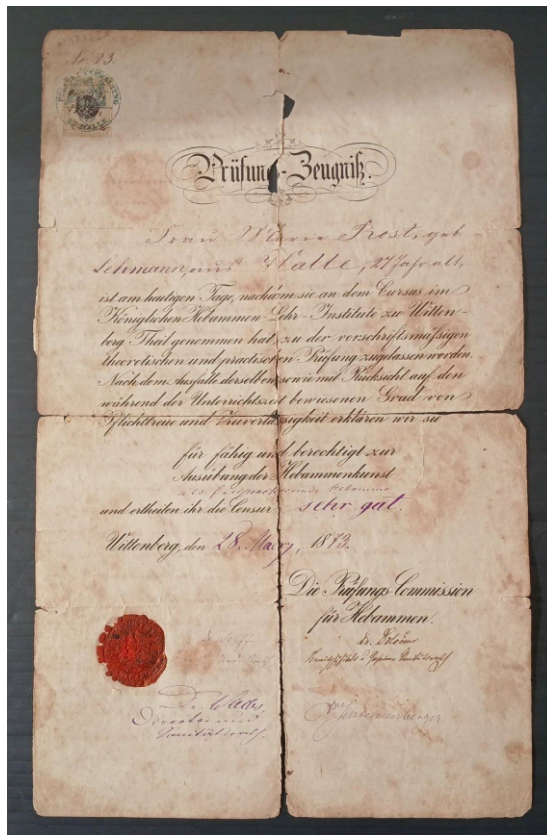 No. 23.
Prüfungs-Zeugniß.
Frau Marie Prost, geb.
Lehmann, aus Halle, 27 Jahr alt,
ist am heutigen Tage, nachdem sie an dem Cursus im
Königlichen Hebammen-Lehr-Institute zu Witten-
berg Theil genommen hat, zu der vorschriftsmäßigen
theoretischen und practischen Prüfung zugelassen worden.
Nach dem Ausfalle derselben, sowie mit Rücksicht auf den
während der Unterrichtszeit bewiesenen Grad von
Pflichttreue und Zuverlässigkeit erklären wir sie
für fähig und berechtigt zur
Ausübung der Hebammenkunst
Hebamme
und ertheilen ihr die Censur sehr gut.
Wittenberg, den 28. März, 1873.
Die Prüfungs-Commission
für Hebammen.
Dr.
Dr.
Director und
Sanitätsrath.